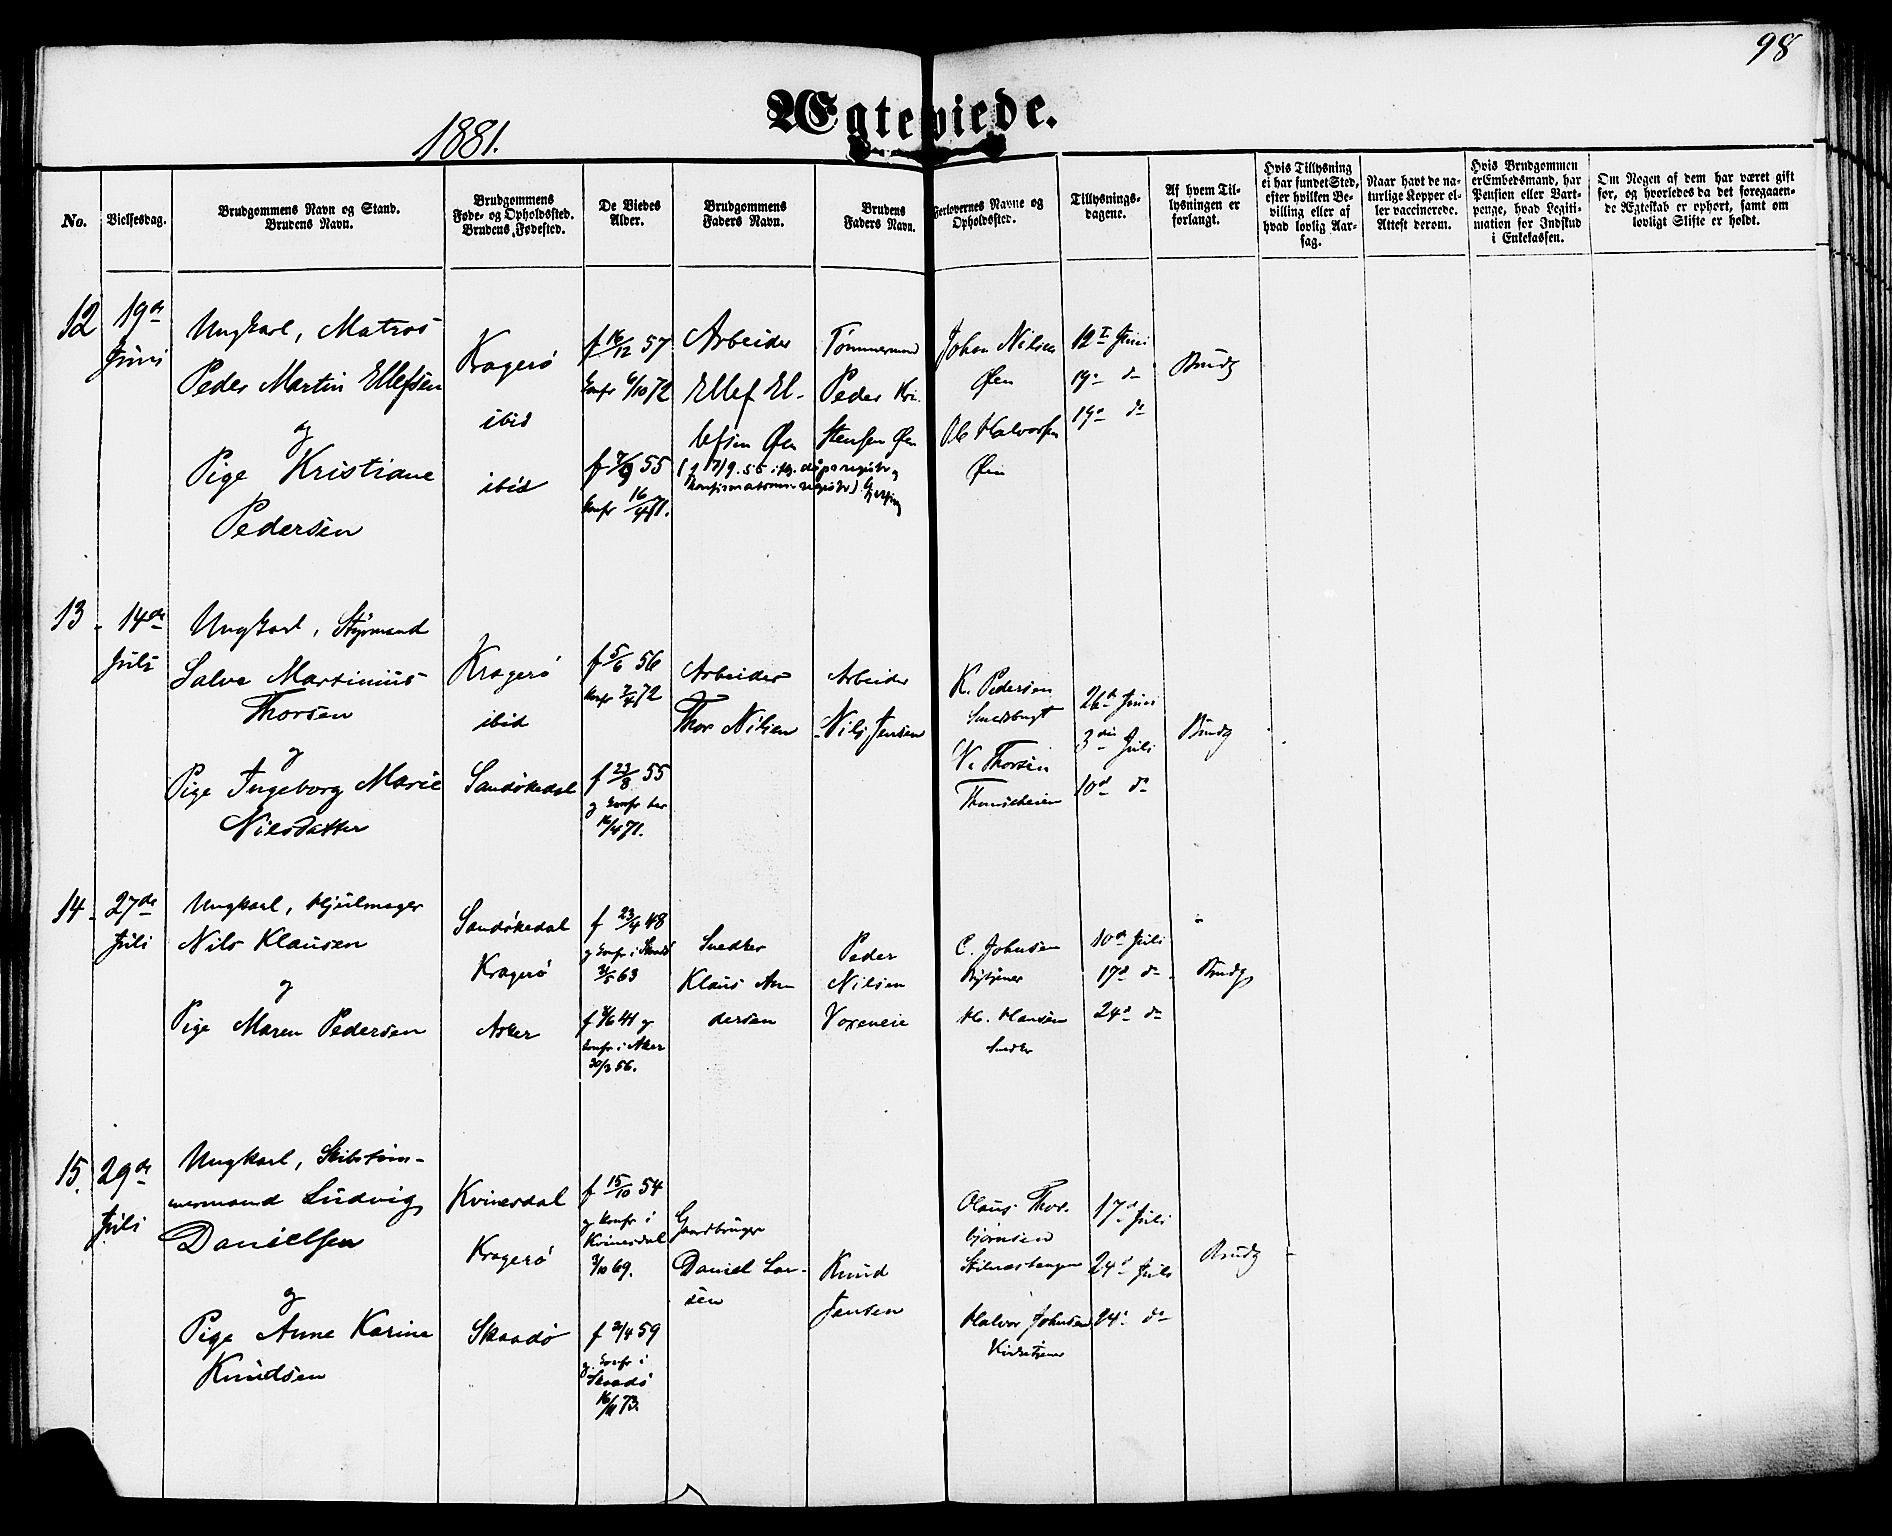 98
Ægteviede.
1881.
No.
Vielsesdag.
Brudgommens Navn og Stand.
Brudens Navn.
Brudgommens
Føde- og Opholdssted.
Brudens Fødested.
De Viedes
Alder.
Brudgommens
Faders Navn.
Brudens
Faders Navn.
Forlovernes Navne og
Opholdssted.
Tillysnings-
dagene.
Af hvem Til-
lysningen er
forlangt.
Hvis Tillysning
ei har fundet Sted,
efter hvilken Be-
villing eller af
hvad lovlig Aar-
sag.
Naar havt de na-
turlige Kopper el-
ler vaccinerede.
Attest derom.
Hvis Brudgommen
er Embedsmand, har
Pension eller Vart-
penge, hvad Legiti-
mation for Indskud
i Enkekassen.
Om Nogen af dem har været gift
før, og hvorledes da det foregaaen-
de Ægteskab er ophørt, samt om
lovligt Skifte er holdt.
12
19de
Juni
Ungkarl, Matros
Peder Martin Ellefsen
og
Pige Kristiane
Pedersen
Kragerø
ibid
ibid
f 16/12 57
Konf 6/10 72
f 7/9 55
Konf 16/4 71.
Arbeider
Ellef El-
lefsen Øen
Tømmermand
Peder Kri
stensen Øen
Johan Nilsen
Øen
Ole Halvorsen
Øen
12te Juni
19de do
19de do
Brudg
13
14de
Juli
Ungkarl, Styrmand
Salve Martinius
Thorsen
og
Pige Ingeborg Marie
Nilsdatter
Kragerø
ibid
Sandøkedal
f 5/6 56
Konf 7/4 72
f 23/8 55
og konf her
16/4 71.
Arbeider
Thor Nilsen
Arbeider
Nils Jensen
K. Pedersen
Smedsbugt
N. Thorsen
26de Juni
3die Juli
10de do
Brudg
14
27de
Juli
Ungkarl, Hjulmager
Nils Klausen
og
Pige Maren Pedersen
Sandøkedal
Kragerø
Asker
f 23/4 48
og konf i
3/5 63
f 4/6 41 og
konf i Aker
30/3 56.
Snedker
Klaus An-
dersen
Peder
Nilsen
Voxeneie
C. Johnsen
Bytjener
H. Hansen
Snedker
10de Juli
17de do
24de do
Brudg
15.
29de
Juli
Ungkarl, Skibstøm-
mermand Ludvig
Danielsen
og
Pige Anne Karine
Knudsen
Kvinesdal
Kragerø
Skaadø
f 15/10 54
og konf i
Kvinesdal
3/10 69.
f 2/4 59
og konf i
Skaadø
16/11 73.
Gaardbruger
Daniel Lar-
sen
Knud
Jensen
Olaus Thor-
bjørnsen
Halvor Johnsen
Kirketjener
17de Juli
24de Juli
24de do
Brudg